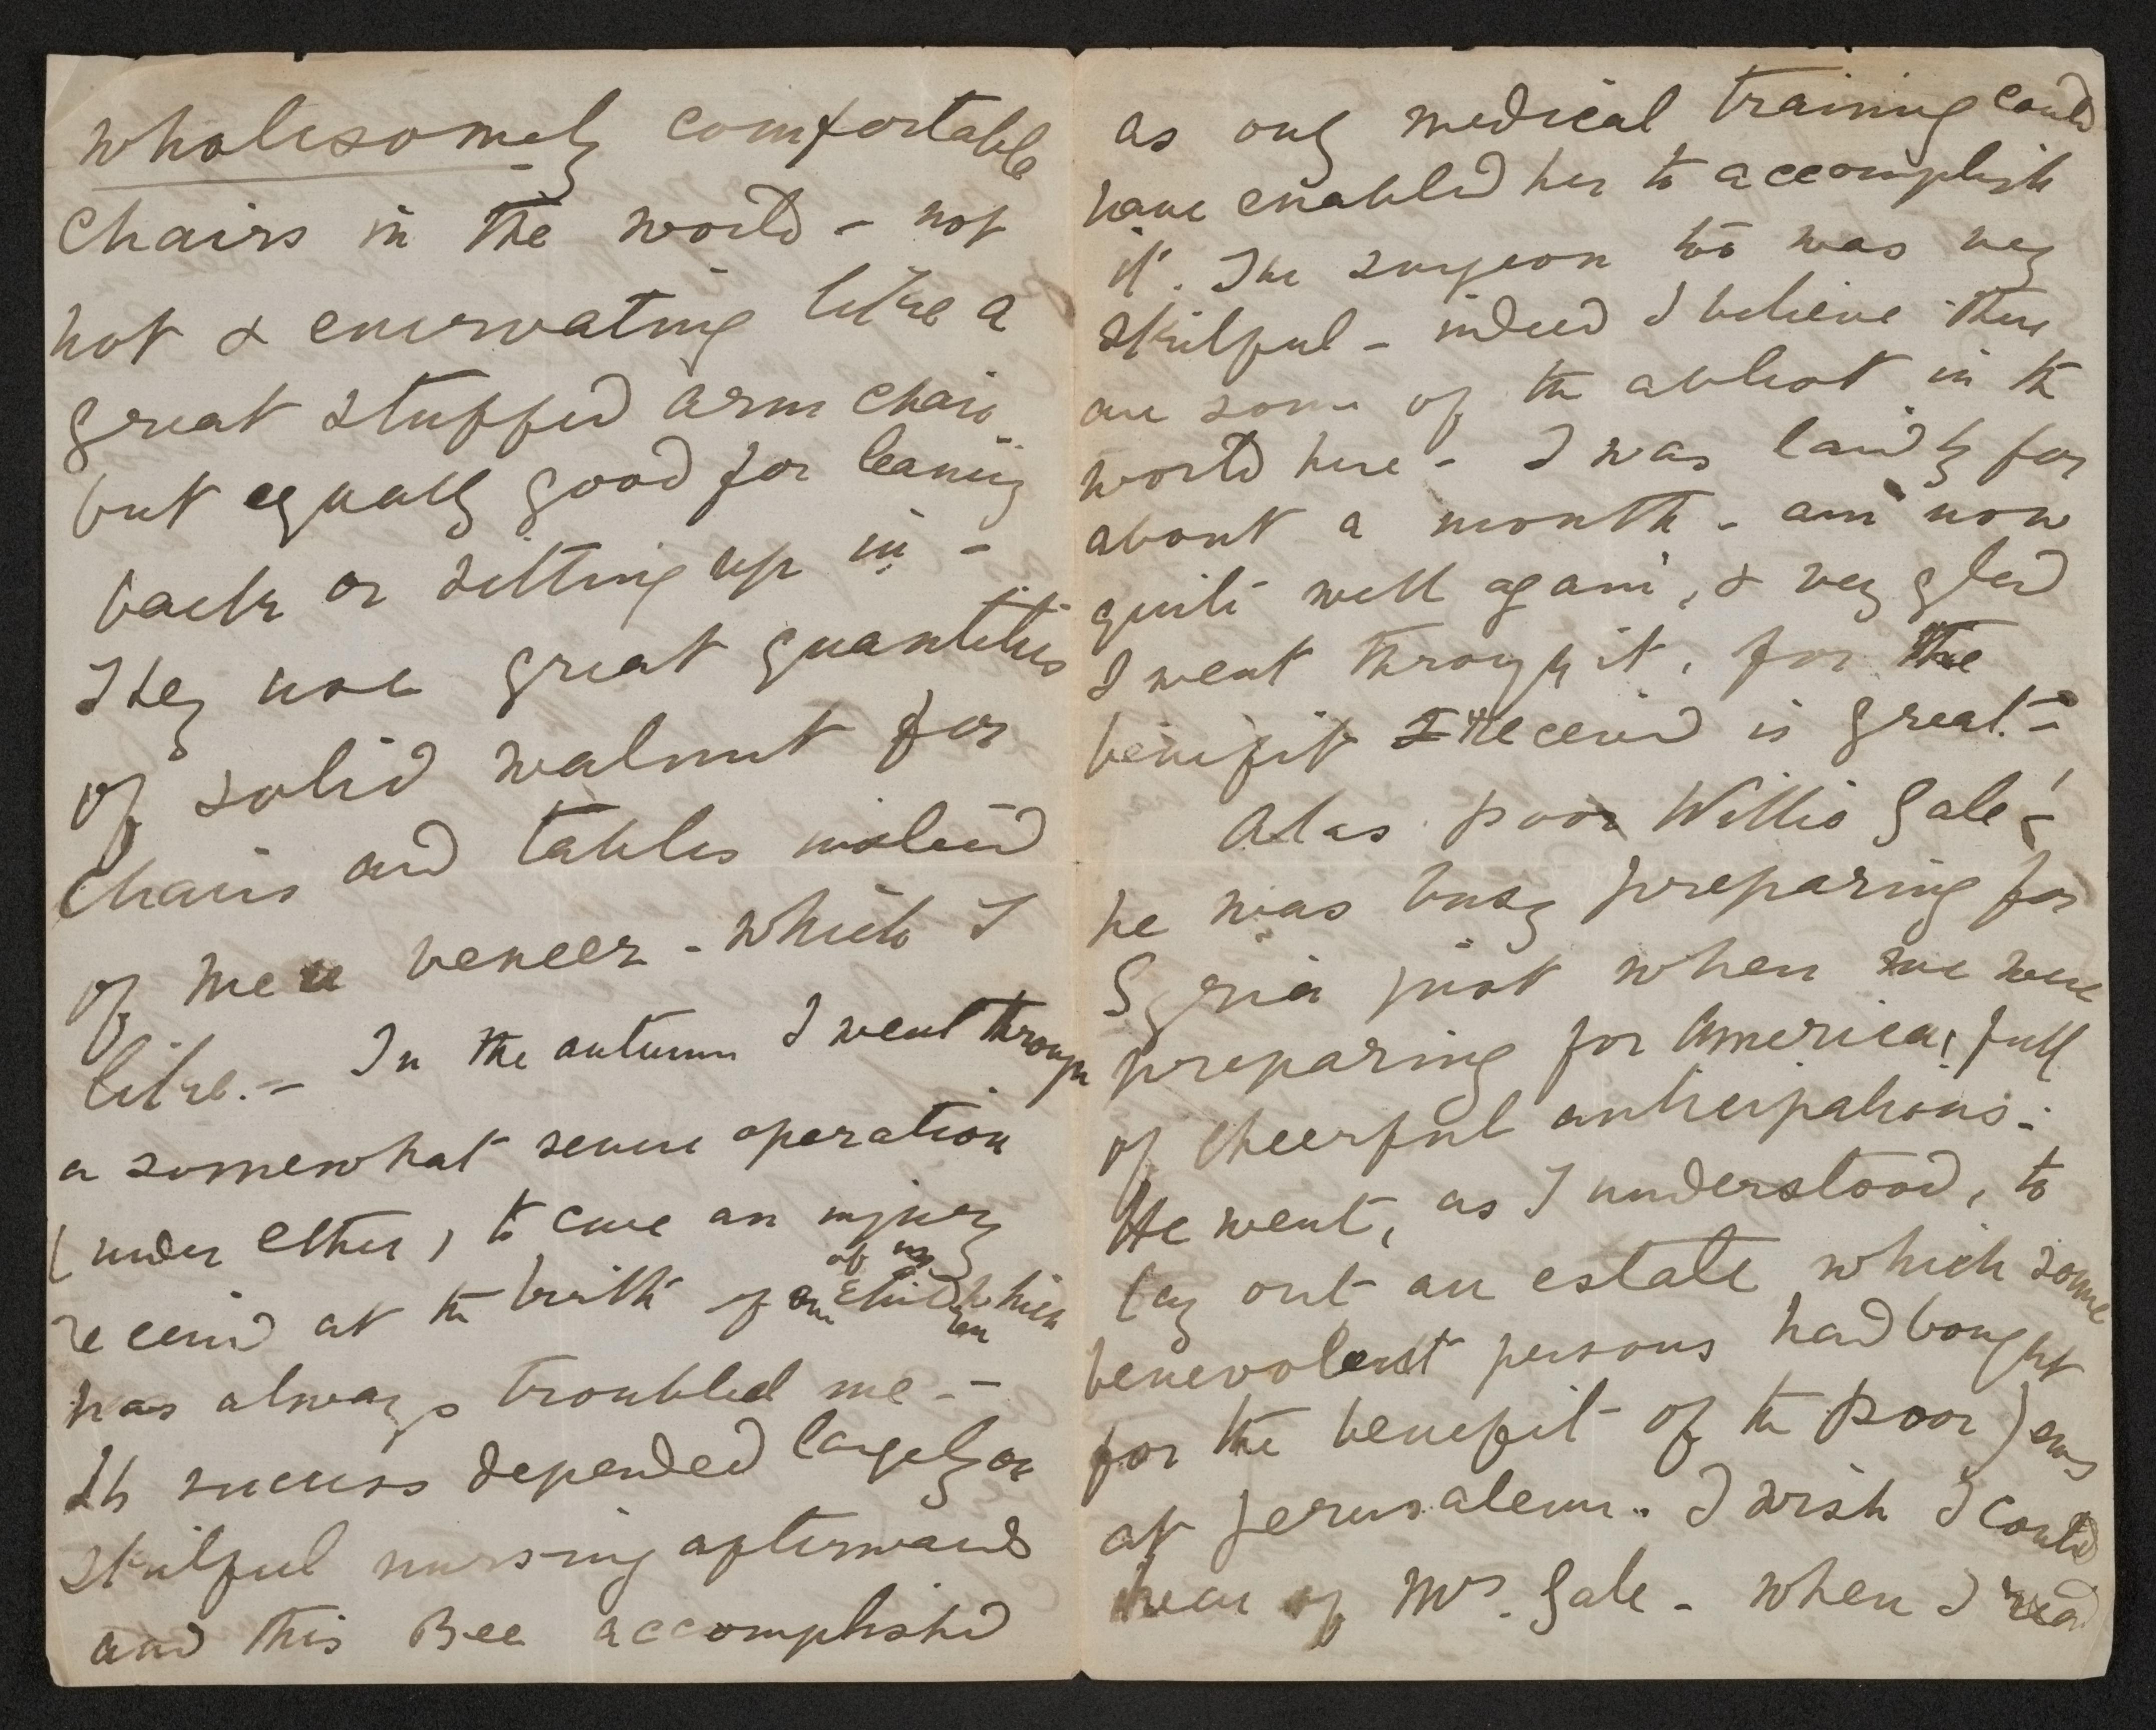 wholesomely comfortable
chairs in the world - not
hot & enervating like a
great stuffed arm chair
but equally good for leaning
back or sitting up in -
They use great quantities
of solid walnut for
chairs and tables instead
of mere veneer - which I
like. - In the autumn I went through
a somewhat severe operation
(under ether) to cure an injury
of my
received at the birth of children which
has always troubled me - -
Its success depended largely on
skilful nursing afterwards
and this Bee accomplished
as only medical training could
have enabled her to accomplish
it. The surgeon too was very
skilful - indeed I believe there
are some of the ablest in the
world here - I was laid by for
about a month - am now
quite well again, & very glad
I went through it, for the
benefit I received is great. -
Alas poor Willie Gale! -
he was busy preparing for
Syria just when we were
preparing for America, full
of cheerful anticipations.
He went, as I understood, to
lay out an estate which some
benevolent persons had bought
for the benefit of the poor Jews
at Jerusalem.. I wish I could
hear of Mrs. Gale - when I read